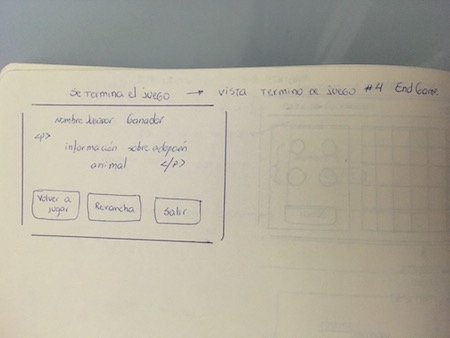 Se termina el juego → vista termino de juego #4 End Game
Nombre Jugador Ganador
<p>
información sobre adopción
animal </p>
Volver a
jugar
Revancha
Salir